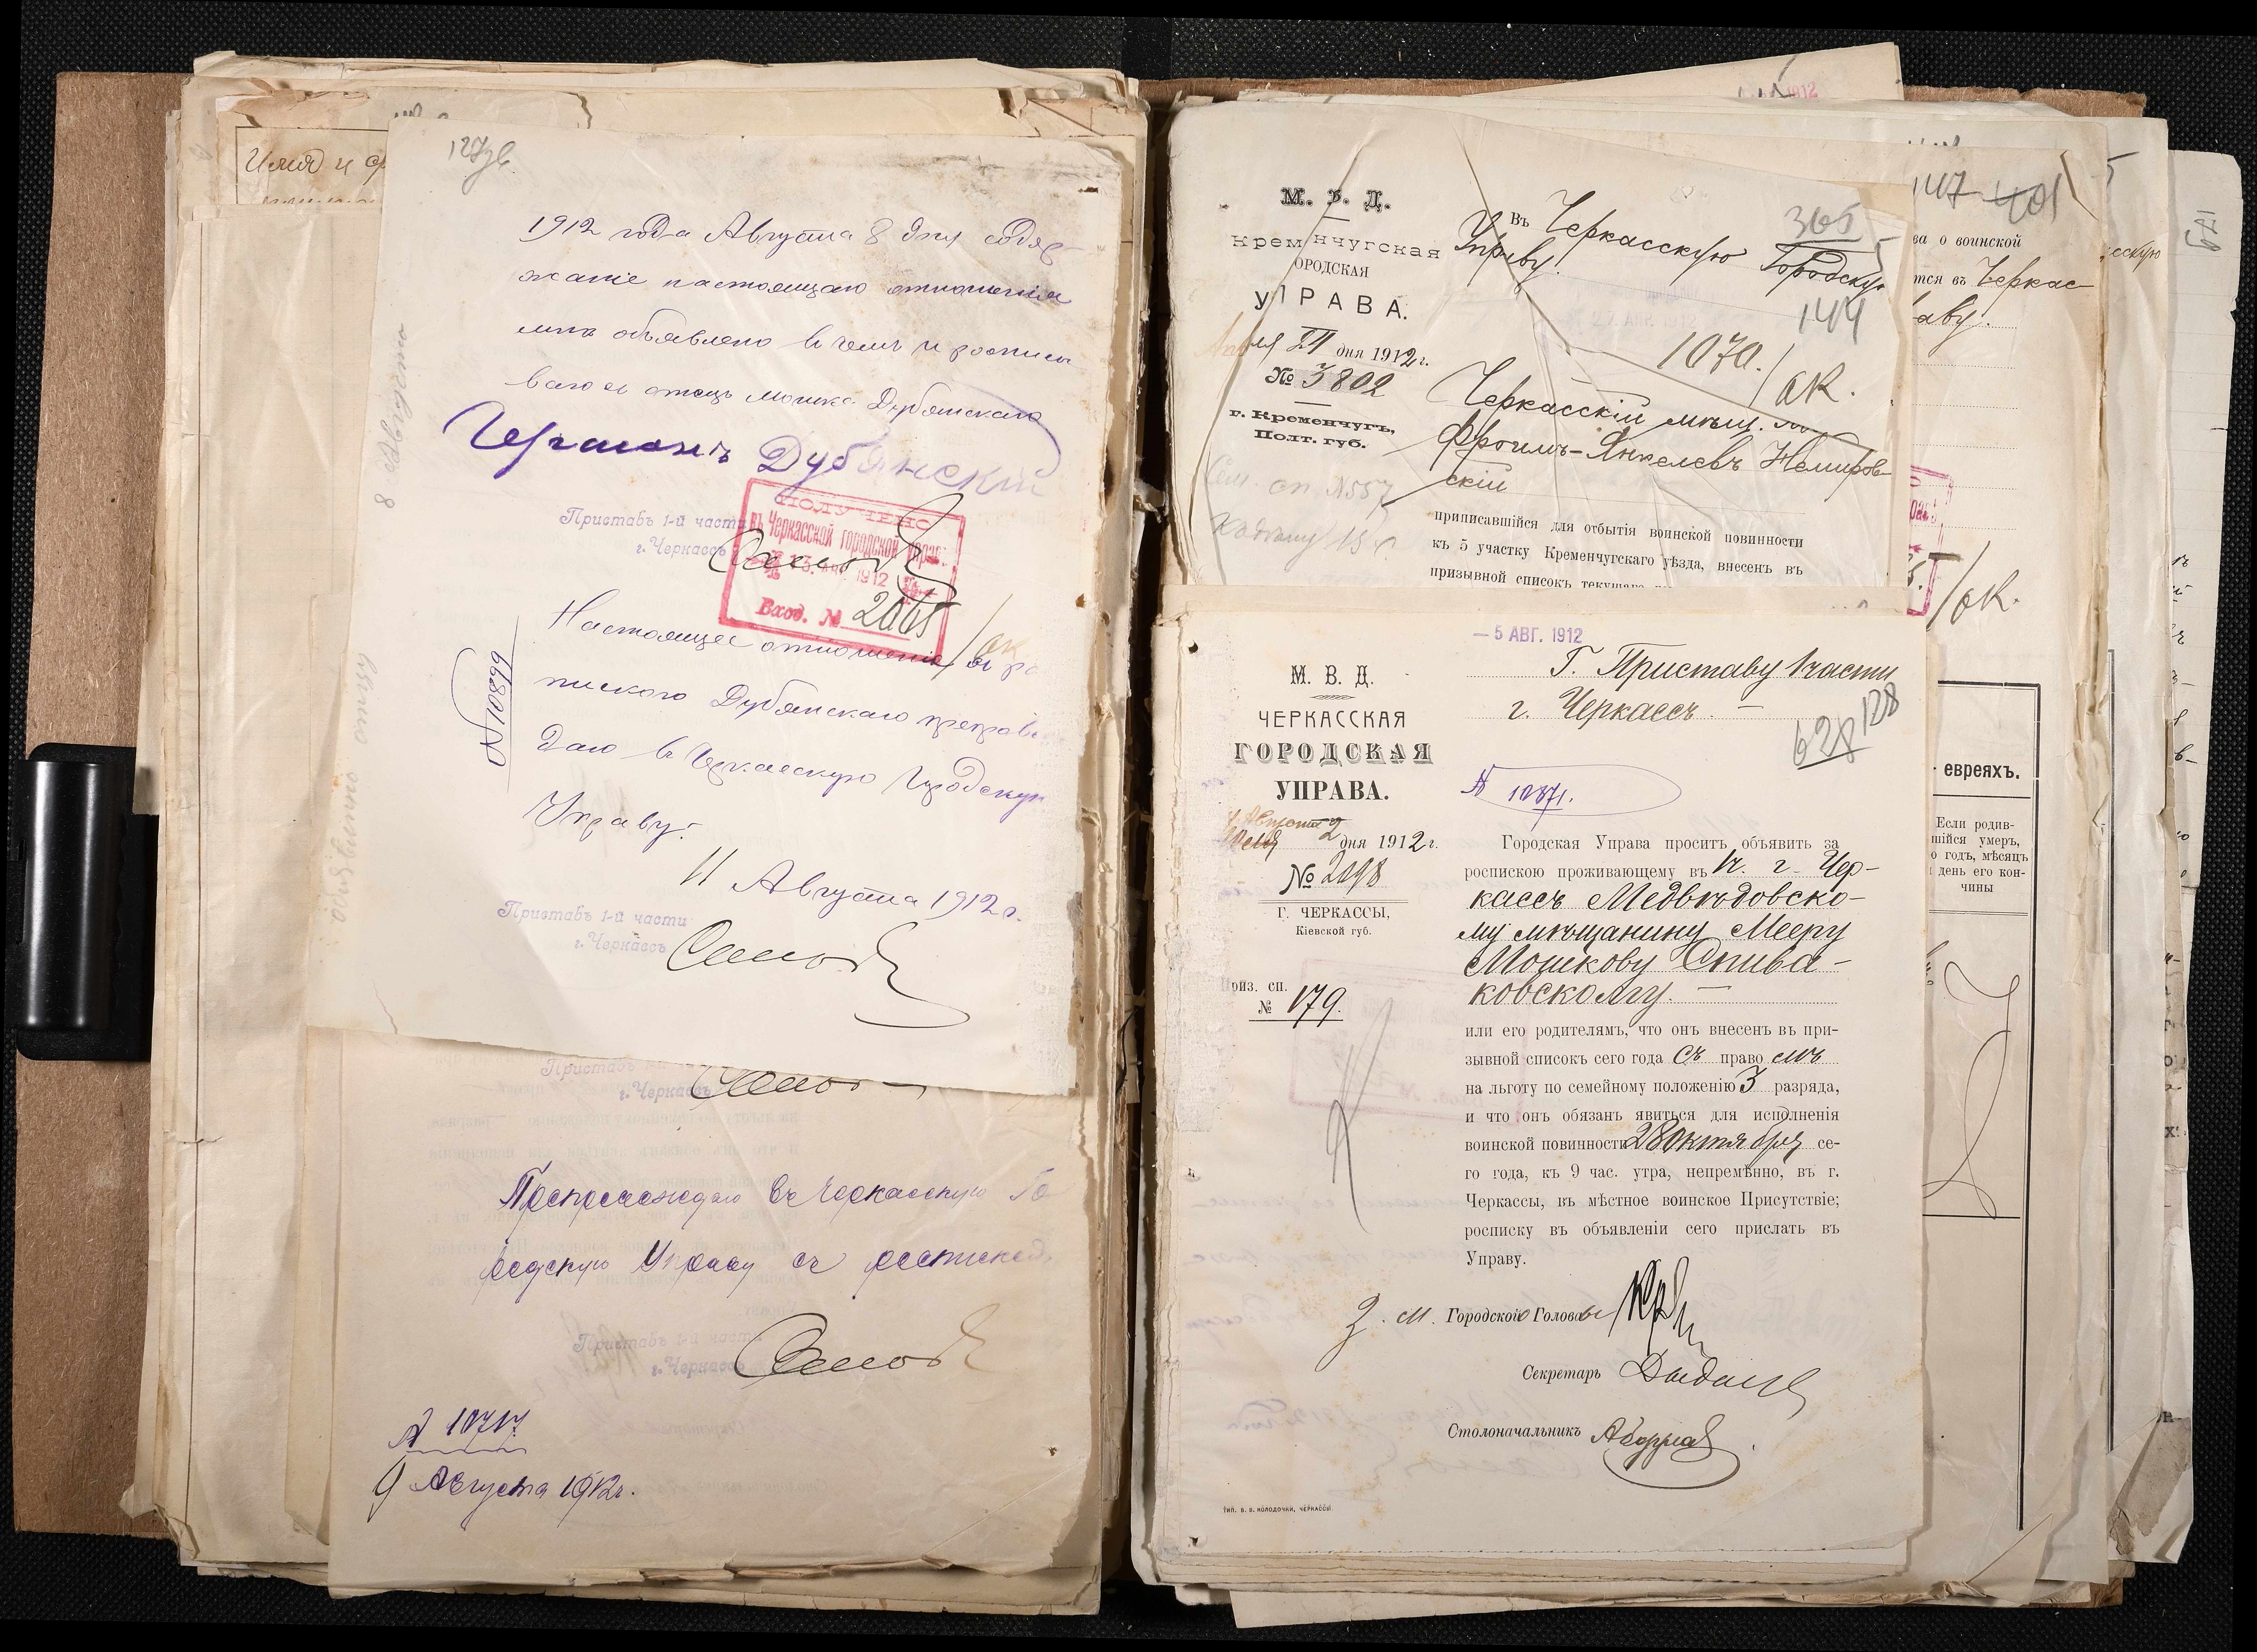 127 об.
1912 года Августа 8 дня содер-
жаніе настоящаго отношенія
мнѣ объявлено въ чемъ и росписы
ваюсь отецъ Мошка Дубянскаго
Дубянскій
Приставъ 1-й части
г. Черкассъ
ПОЛУЧЕНО
въ Черкасской городской управѣ
13. АВГ. 1912
Вход. №
Настоящее отношеніе съ ро
пискою Дубянскаго препрово
даю въ Черкасскую Городскую
Управу.
№ 10899
11 Августа 1912 г.
Приставъ 1-й части
г. Черкассъ
8 Августа
Имя и
Приставъ 1-й части
г. Черкассъ
Препровождаю въ Черкасскую Го
родскую Управу съ роспискою.
Приставъ 1-й части
г. Черкассъ
№ 10717.
9 Августа 1912 г.
М. В. Д.
Кременчугская
ГОРОДСКАЯ
УПРАВА.
дня 1912 г.
№ 3802
г. Кременчугъ,
Полт. губ.
Въ Черкасскую Городскую
Управу.
365
144
1070.
ОК.
Черкасскій мѣщ.
Фроимъ-Янкелевъ Немиров-
скій
приписавшійся для отбытія воинской повинности
къ 5 участку Кременчугскаго уѣзда, внесенъ въ
призывной списокъ текущаго
сп. №557
147 401
ва о воинской
тся въ Черкас-
аву.
ОК.
евреяхъ.
Если родив-
шійся умеръ,
о годъ, мѣсяцъ
день его кон-
чины
— 5 АВГ. 1912
М. В. Д.
ЧЕРКАССКАЯ
ГОРОДСКАЯ
УПРАВА.
Августа 2 дня 1912 г.
№ 2098
Г. ЧЕРКАССЫ,
Кіевской губ.
Приз. сп.
№ 179.
Г. Приставу 1 части
г. Черкассъ. —
628 128
№ 10871.
Городская Управа проситъ объявить за
роспискою проживающему въ 1 ч. г. Чер-
кассъ Медвѣдовско-
му мѣщанину Мееру
Мошкову Спива-
ковскому. —
или его родителямъ, что онъ внесенъ въ при-
зывной списокъ сего года съ право мъ
на льготу по семейному положенію 3 разряда,
и что онъ обязанъ явиться для исполненія
воинской повинности 28 октября се-
го года, къ 9 час. утра, непремѣнно, въ г.
Черкассы, въ мѣстное воинское Присутствіе;
росписку въ объявленіи сего прислать въ
Управу.
З. М. Городского Головы
Секретарь
Столоначальникъ
ТИП. В. В. КОЛОДОЧКИ, ЧЕРКАССЫ